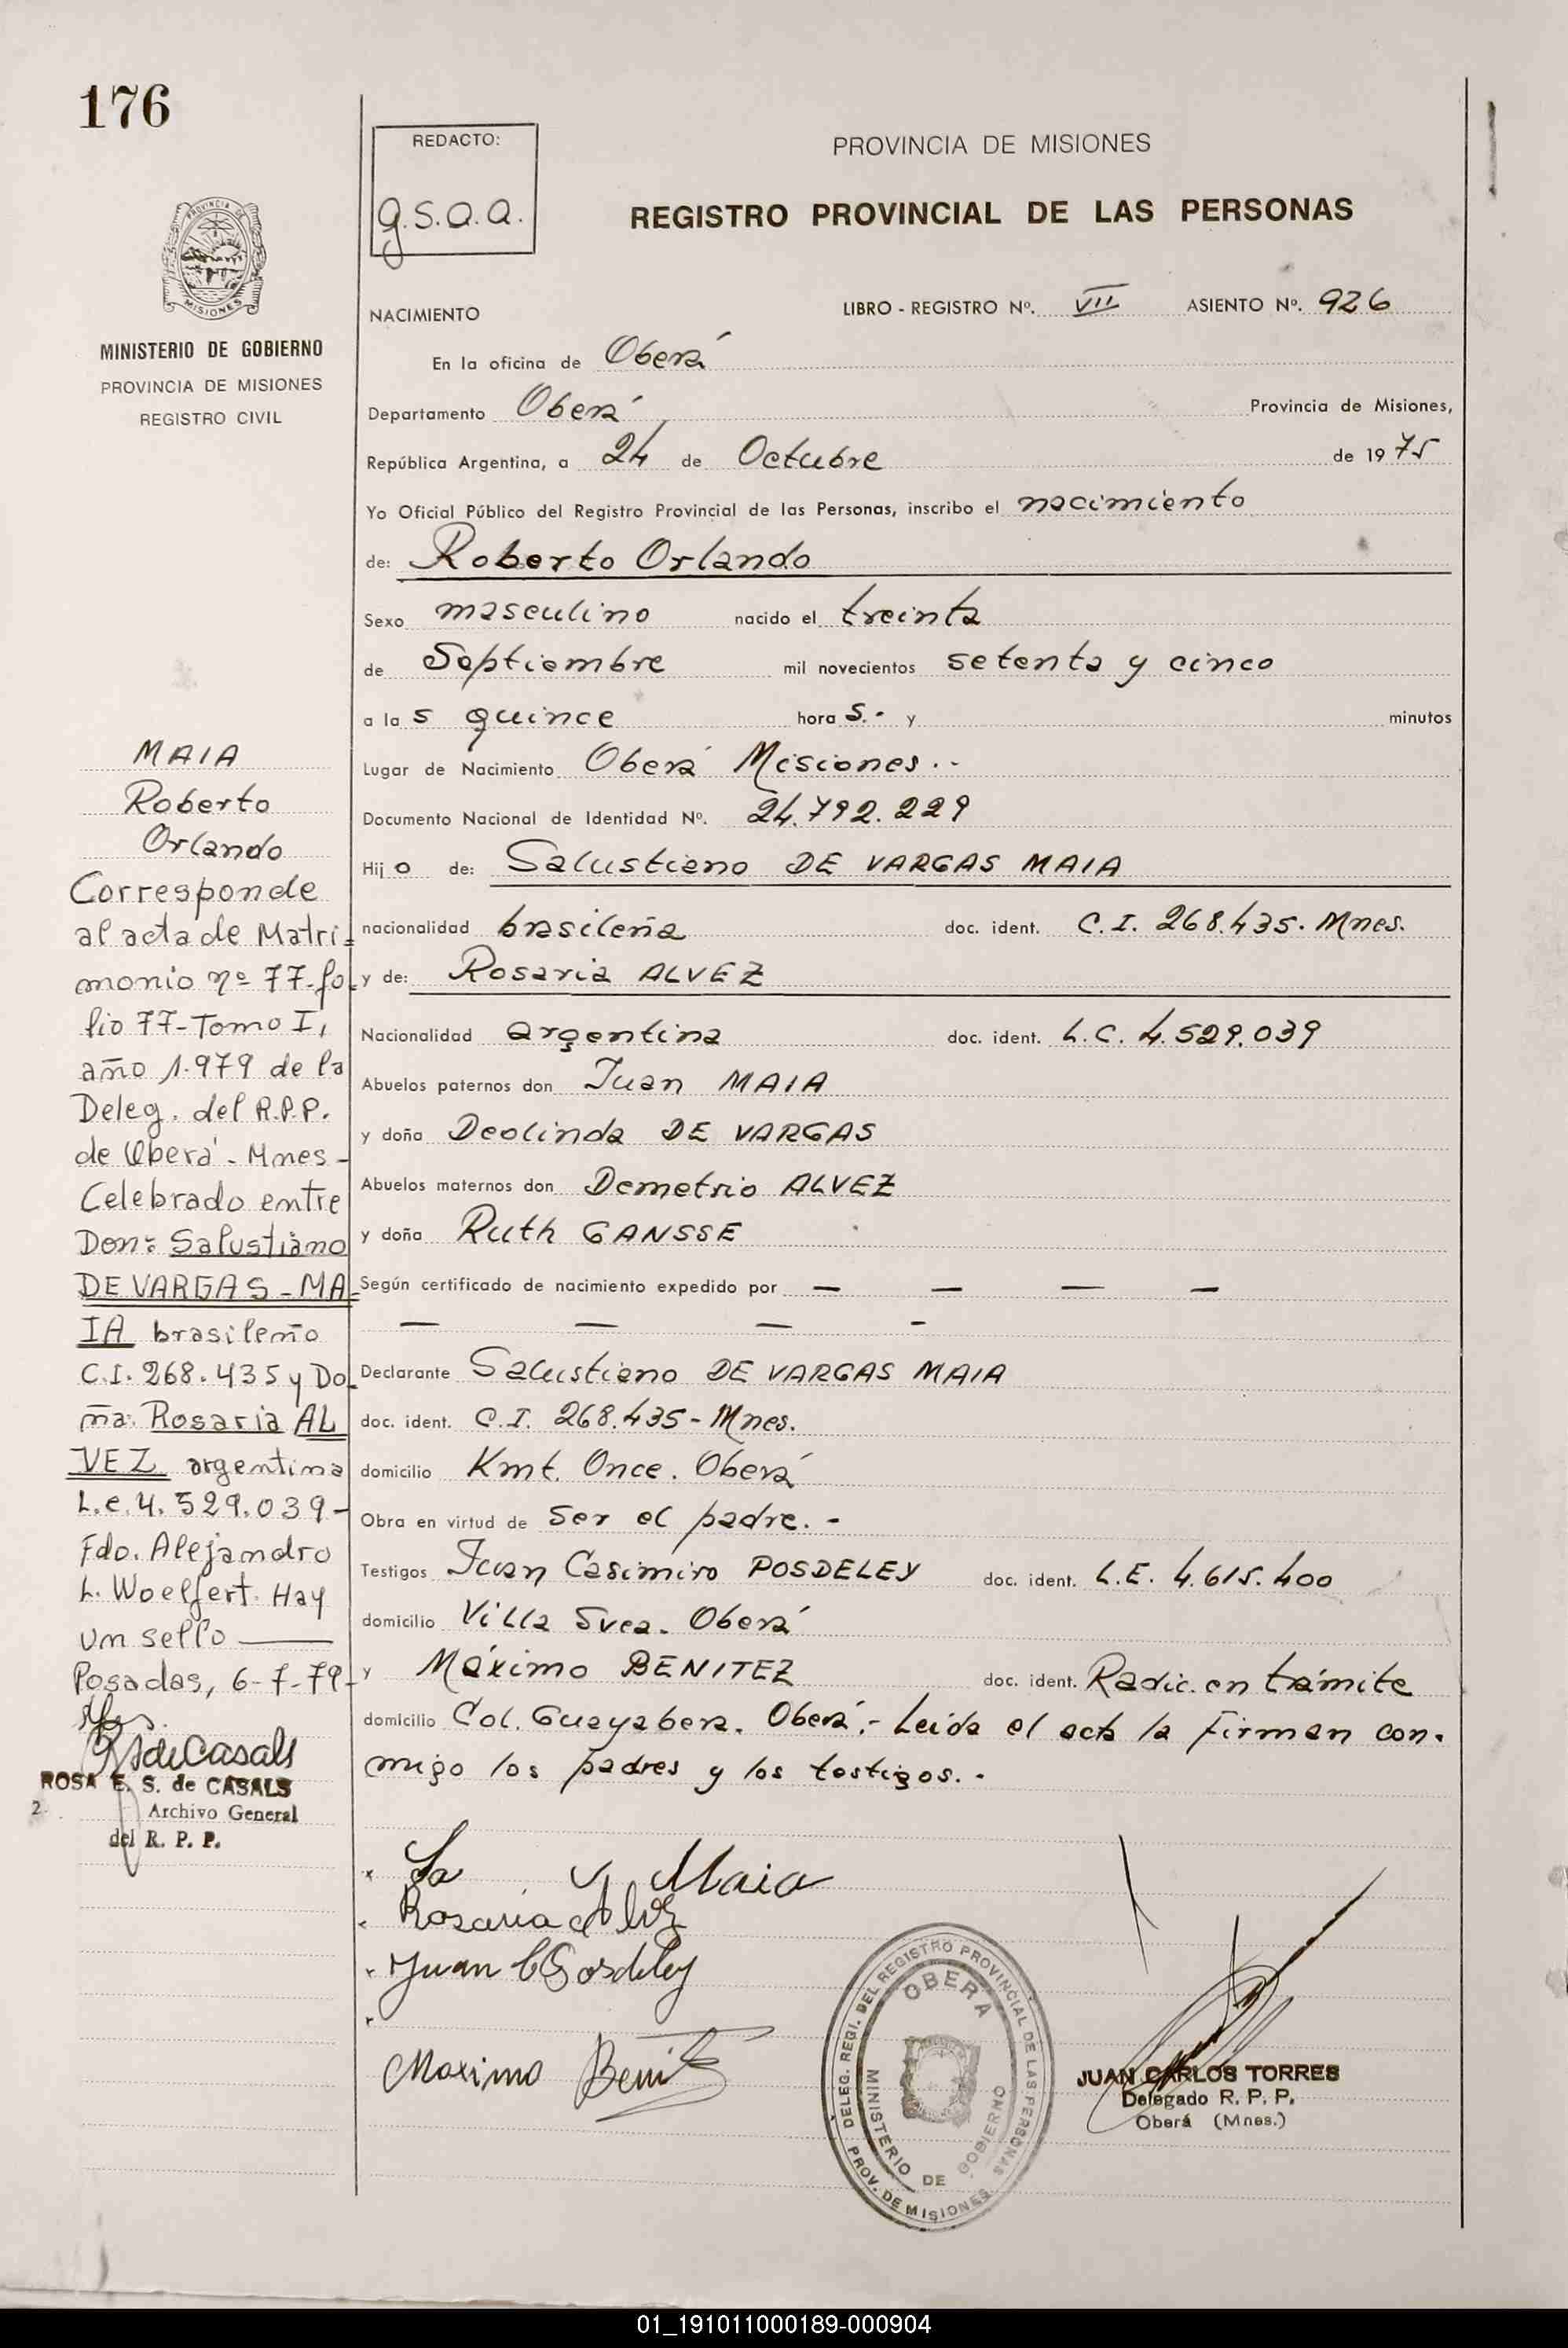 176
REDACTO:
g.s.a.a.
PROVINCIA DE MISIONES
REGISTRO PROVINCIAL DE LAS PERSONAS
PROVINCIA DE
MISIONES
MINISTERIO DE GOBIERNO
PROVINCIA DE MISIONES
REGISTRO CIVIL
NACIMIENTO LIBRO - REGISTRO Nº. VII ASIENTO Nº. 926
En la oficina de Oberá
Departamento Oberá Provincia de Misiones,
República Argentina, a 24 de Octubre de 1975
Yo Oficial Público del Registro Provincial de las Personas, inscribo el nacimiento
de: Roberto Orlando
Sexo masculino nacido el treinta
de Septiembre mil novecientos setenta y cinco
a las quince hora s.- y minutos
Lugar de Nacimiento Oberá Misiones.-
Documento Nacional de Identidad Nº. 24.792.229
Hijo de: Salustiano DE VARGAS MAIA
nacionalidad brasileña doc. ident. C.I. 268.435. Mnes.
y de: Rosaria ALVEZ
Nacionalidad argentina doc. ident. L.C. 4.529.039
Abuelos paternos don Juan MAIA
y doña Deolinda DE VARGAS
Abuelos maternos don Demetrio ALVEZ
y doña Ruth GANSSE
Según certificado de nacimiento expedido por — — — —
— — — -
Declarante Salustiano DE VARGAS MAIA
doc. ident. C.I. 268.435- Mnes.
domicilio Kmt. Once. Oberá
Obra en virtud de ser el padre.-
Testigos Juan Casimiro POSDELEY doc. ident. L.E. 4.615.400
domicilio Villa Svea. Oberá
y Máximo BENITEZ doc. ident. Radic. en trámite
domicilio Col. Guayabera. Oberá.- Leída el acta la firman con-
migo los padres y los testigos.-
MAIA
Roberto
Orlando
Corresponde
al acta de Matri-
monio nº 77-fo-
lio 77-Tomo I,
año 1.979 de la
Deleg. del R.P.P.
de Oberá - Mnes-
Celebrado entre
Don: Salustiano
DE VARGAS - MA-
IA brasileño
C.I. 268.435 y Do-
ña: Rosaria AL
VEZ argentina
L.c. 4.529.039-
Fdo. Alejandro
L. Woelfert. Hay
un sello —
Posadas, 6-7-79-
deCasals
ROSA E. S. de CASALS
2. Archivo General
del R. P. P.
Sa V Maia
Rosaria Alvez
Juan C Posdeley
Maximo Benitez
DELEG. REGI. DEL REGISTRO PROVINCIAL DE LAS PERSONAS
OBERA
MINISTERIO DE GOBIERNO
PROV. DE MISIONES
JUAN CARLOS TORRES
Delegado R. P. P.
Oberá (Mnes.)
01_191011000189-000904